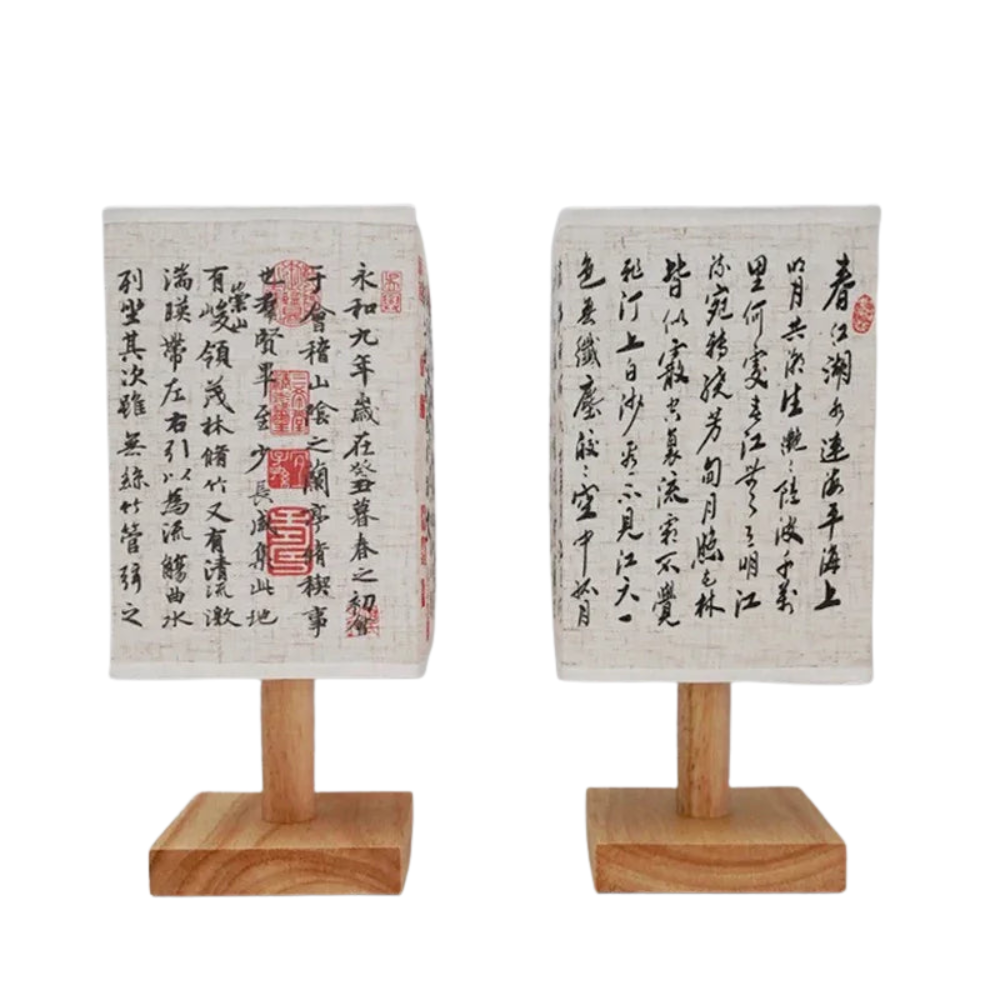 永和九年歲在癸丑暮春之初會
于會稽山陰之蘭亭脩禊事
也羣賢畢至少長咸集此地
有崇山峻領茂林脩竹又有清流激
湍暎帶左右引以為流觴曲水
列坐其次雖無絲竹管弦之
春江潮水連海平海上
明月共潮生灩〻隨波千萬
里何處春江無月明江
流宛轉繞芳甸月照花林
皆似霰空裏流霜不覺
飛汀上白沙看不見江天一
色無纖塵皎〻空中孤月